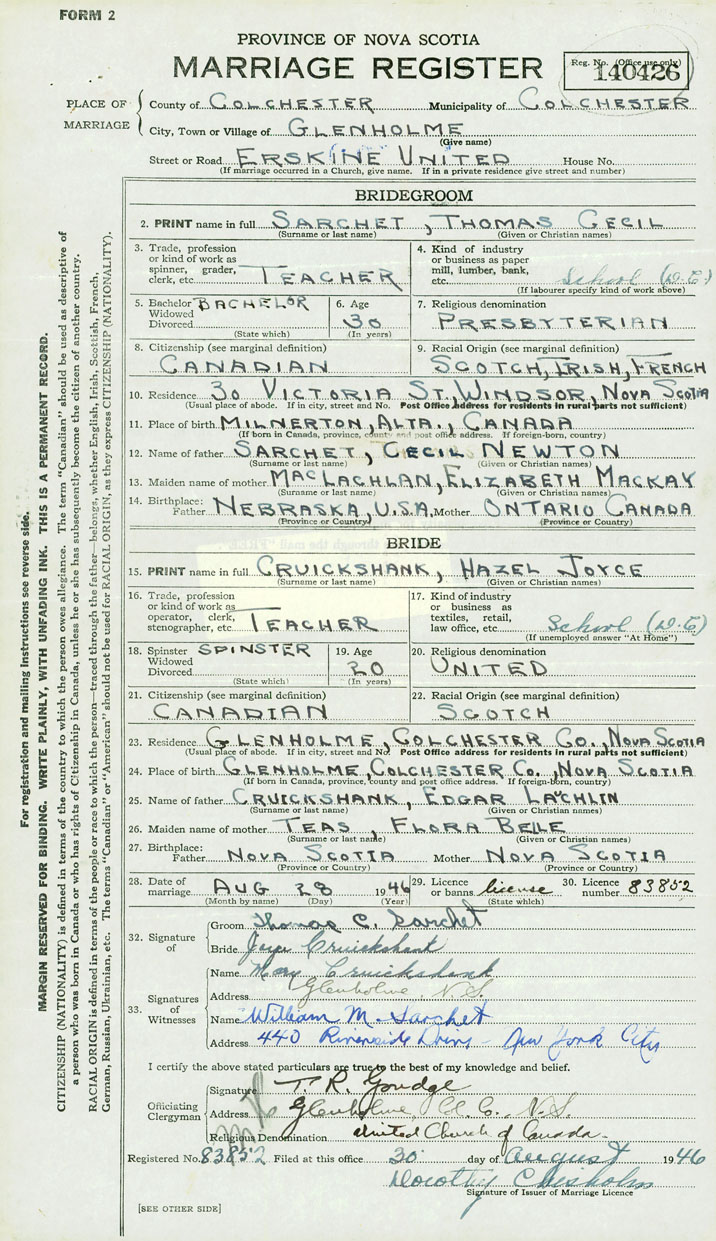 FORM 2
PROVINCE OF NOVA SCOTIA
MARRIAGE REGISTER
Reg. No. (Office use only)
140426
PLACE OF MARRIAGE
County of COLCHESTER Municipality of COLCHESTER
City, Town or Village of GLENHOLME
(Give name)
Street or Road ERSKINE UNITED House No.
(If marriage occurred in a Church, give name. If in a private residence give street and number)
BRIDEGROOM
2. PRINT name in full SARCHET, THOMAS CECIL
(Surname or last name) (Given or Christian names)
3. Trade, profession or kind of work as spinner, grader, clerk, etc. TEACHER
4. Kind of industry or business as paper mill, lumber, bank, etc. School (D.E.)
(If labourer specify kind of work above)
5. Bachelor Widowed Divorced BACHELOR
(State which)
6. Age 30
(In years)
7. Religious denomination
PRESBYTERIAN
8. Citizenship (see marginal definition)
CANADIAN
9. Racial Origin (see marginal definition)
SCOTCH, IRISH, FRENCH
10. Residence 30 VICTORIA ST., WINDSOR, NOVA SCOTIA
(Usual place of abode. If in city, street and No. Post Office address for residents in rural parts not sufficient)
11. Place of birth MILNERTON, ALTA., CANADA
(If born in Canada, province, county and post office address. If foreign-born, country)
12. Name of father SARCHET, CECIL NEWTON
(Surname or last name) (Given or Christian names)
13. Maiden name of mother MACLACHLAN, ELIZABETH MACKAY
(Surname or last name) (Given or Christian names)
14. Birthplace: Father NEBRASKA, U.S.A. Mother ONTARIO CANADA
(Province or Country) (Province or Country)
BRIDE
15. PRINT name in full CRUICKSHANK, HAZEL JOYCE
(Surname or last name) (Given or Christian names)
16. Trade, profession or kind of work as operator, clerk, stenographer, etc. TEACHER
17. Kind of industry or business as textiles, retail, law office, etc. School (D.E.)
(If unemployed answer "At Home")
18. Spinster Widowed Divorced SPINSTER
(State which)
19. Age 20
(In years)
20. Religious denomination
UNITED
21. Citizenship (see marginal definition)
CANADIAN
22. Racial Origin (see marginal definition)
SCOTCH
23. Residence GLENHOLME, COLCHESTER CO., NOVA SCOTIA
(Usual place of abode. If in city, street and No. Post Office address for residents in rural parts not sufficient)
24. Place of birth GLENHOLME, COLCHESTER CO., NOVA SCOTIA
(If born in Canada, province, county and post office address. If foreign-born, country)
25. Name of father CRUICKSHANK, EDGAR LACHLIN
(Surname or last name) (Given or Christian names)
26. Maiden name of mother TEAS, FLORA BELLE
(Surname or last name) (Given or Christian names)
27. Birthplace: Father NOVA SCOTIA Mother NOVA SCOTIA
(Province or Country) (Province or Country)
28. Date of marriage AUG 28 1946
(Month by name) (Day) (Year)
29. Licence or banns license
(State which)
30. Licence number 83852
32. Signature of
Groom Thomas C. Sarchet
Bride Joyce Cruickshank
33. Signatures of Witnesses
Name Mary Cruickshank
Address Glenholme, N.S.
Name William M. Sarchet
Address 440 Riverside Drive - New York City
I certify the above stated particulars are true to the best of my knowledge and belief.
Officiating Clergyman
Signature T. R. Goudge
Address Glenholme, Col. Co. N.S.
Religious Denomination United Church of Canada.
Registered No. 83852 Filed at this office 30 day of August 1946
Dorothy Chisholm
Signature of Issuer of Marriage Licence
[SEE OTHER SIDE]
For registration and mailing instructions see reverse side.
MARGIN RESERVED FOR BINDING. WRITE PLAINLY, WITH UNFADING INK. THIS IS A PERMANENT RECORD.
CITIZENSHIP (NATIONALITY) is defined in terms of the country to which the person owes allegiance. The term "Canadian" should be used as descriptive of
a person who was born in Canada or who has rights of Citizenship in Canada, unless he or she has subsequently become the citizen of another country.
RACIAL ORIGIN is defined in terms of the people or race to which the person—traced through the father—belongs, whether English, Irish, Scottish, French,
German, Russian, Ukrainian, etc. The terms "Canadian" or "American" should not be used for RACIAL ORIGIN, as they express CITIZENSHIP (NATIONALITY).